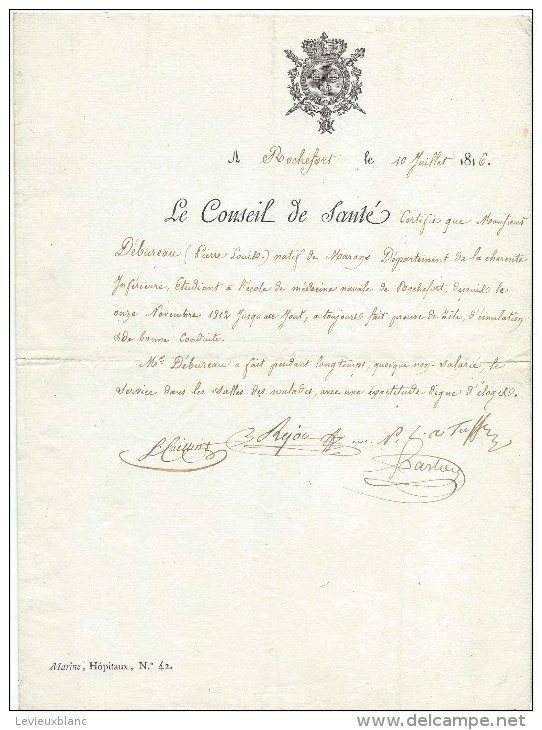 A Rochefort le 10 Juillet 1816.
Le Conseil de Santé Certifie que Monsieur
Débureau (Pierre Louis.) natif de Marans Département de la charente
Inférieure, Etudiant à l'école de médecine navale de Rochefort, depuis le
onze Novembre 1812 Jusqu'a ce Jour, a toujours fait preuve de Zèle, d'émulation
& de bonne Conduite.
Mr. Débureau a fait pendant longtemps, quoique non-salarié, le
service dans les salles des malades, avec une exactitude digne d'éloges.
Réjou
Marine, Hôpitaux, N.° 42.
Levieuxblanc
delcampe.net